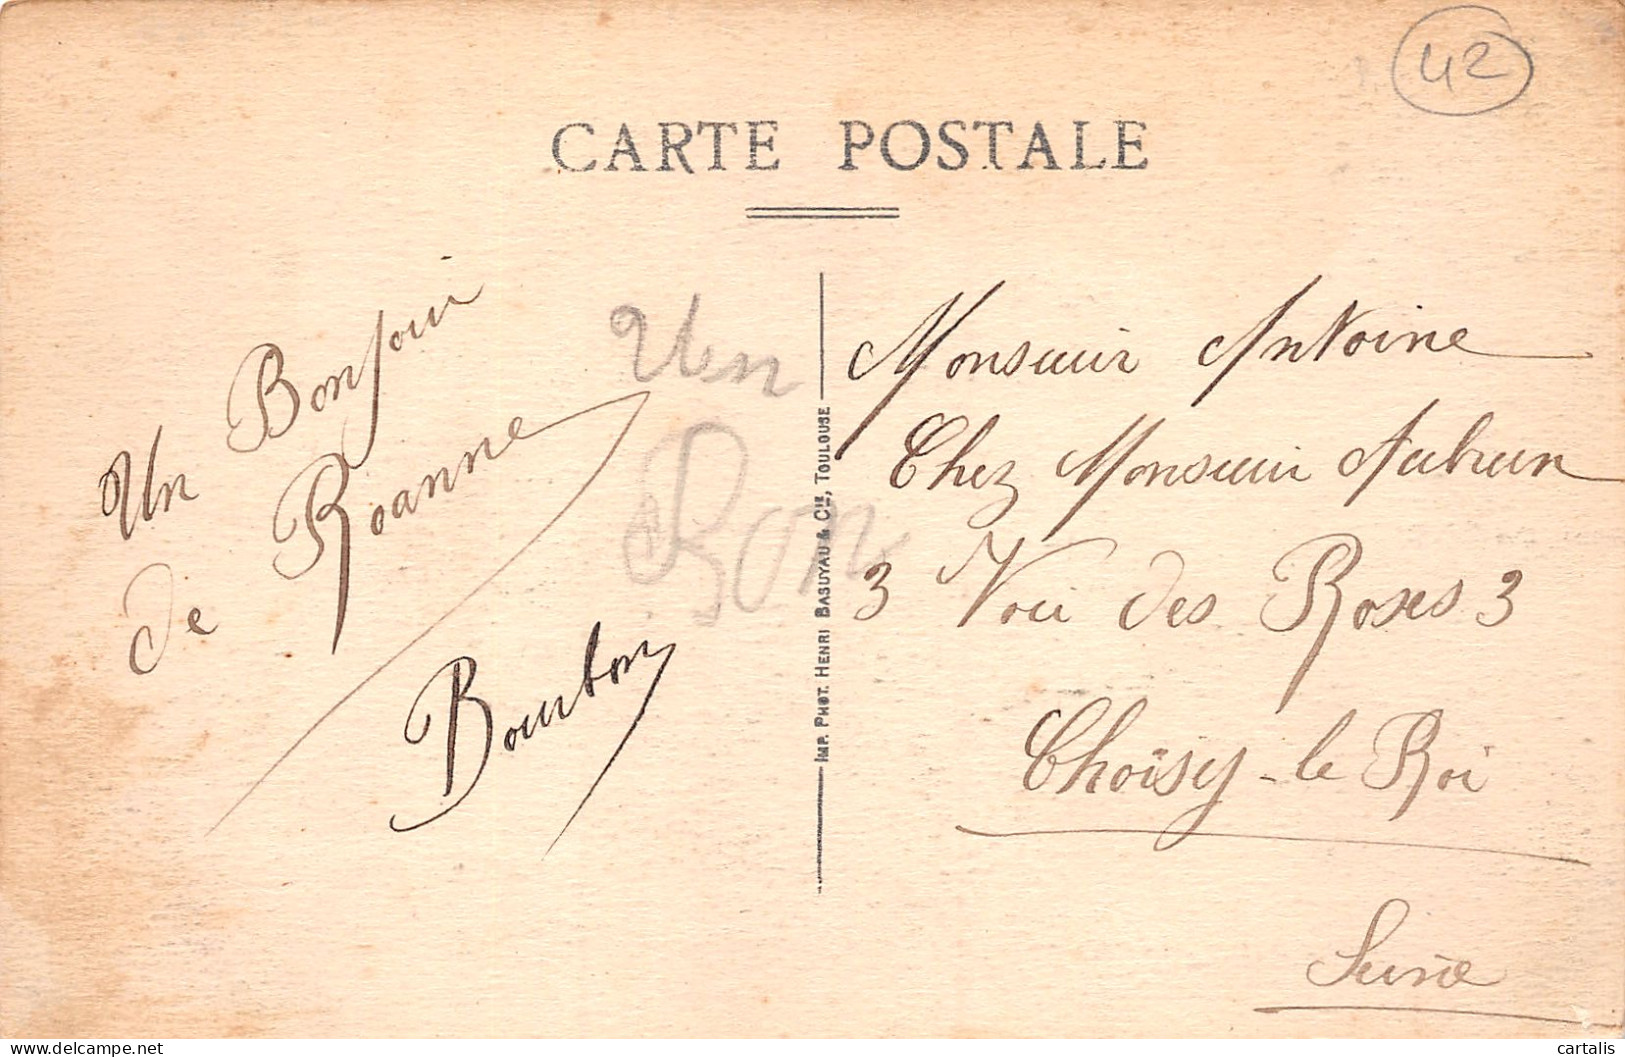 42
CARTE POSTALE
Un Bonjour
de Roanne
Bourbon
Un
Bon
IMP. PHOT. HENRI BASUYAU & CIE, TOULOUSE
Monsieur Antoine
Chez Monsieur Aubrun
3 Voie des Roses 3
Choïsy-le Roi
Seine
cartalis